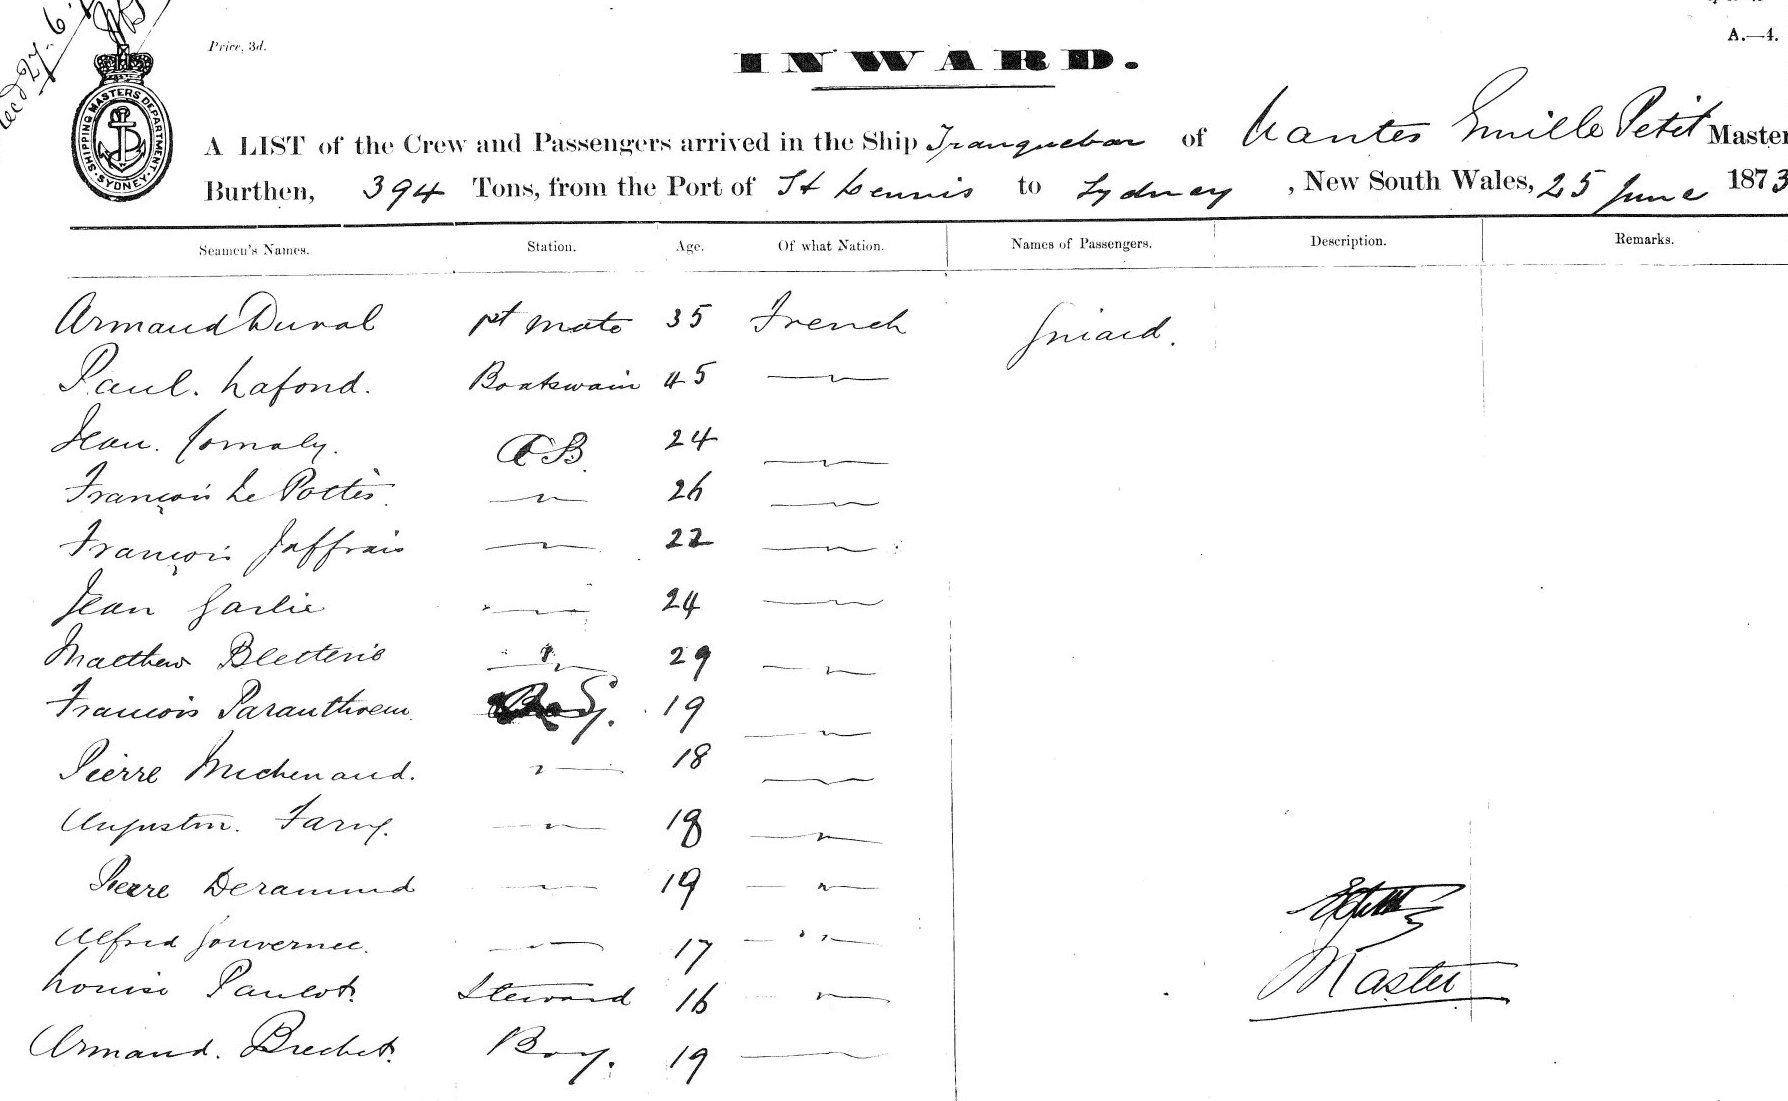 Price, 3d.
A.—4.
INWARD.
SHIPPING MASTERS DEPARTMENT
SYDNEY
A LIST of the Crew and Passengers arrived in the Ship Tranquebar of Nantes Emille Petit Master
Burthen, 394 Tons, from the Port of St Dennis to Sydney, New South Wales, 25 June 1873
Seamen's Names. Station. Age. Of what Nation. Names of Passengers. Description. Remarks.
Armand Duval 1st Mate 35 French
Paul. Lafond. Boatswain 45 — " —
Jean. AB 24 — " —
François Le — " — 26 — " —
François Jaffrais — " — 22 — " —
Jean — " — 24 — " —
Matthew — " — 29 — " —
Francois Boy. 19 — " —
Pierre Michenaud. — " — 18 — " —
Augustin. — " — 18 — " —
Pierre — " — 19 — " —
Alfred Gouvernec. — " — 17 — " —
Louise Steward 16 — " —
Armand. Brechet. Boy. 19 —
Master